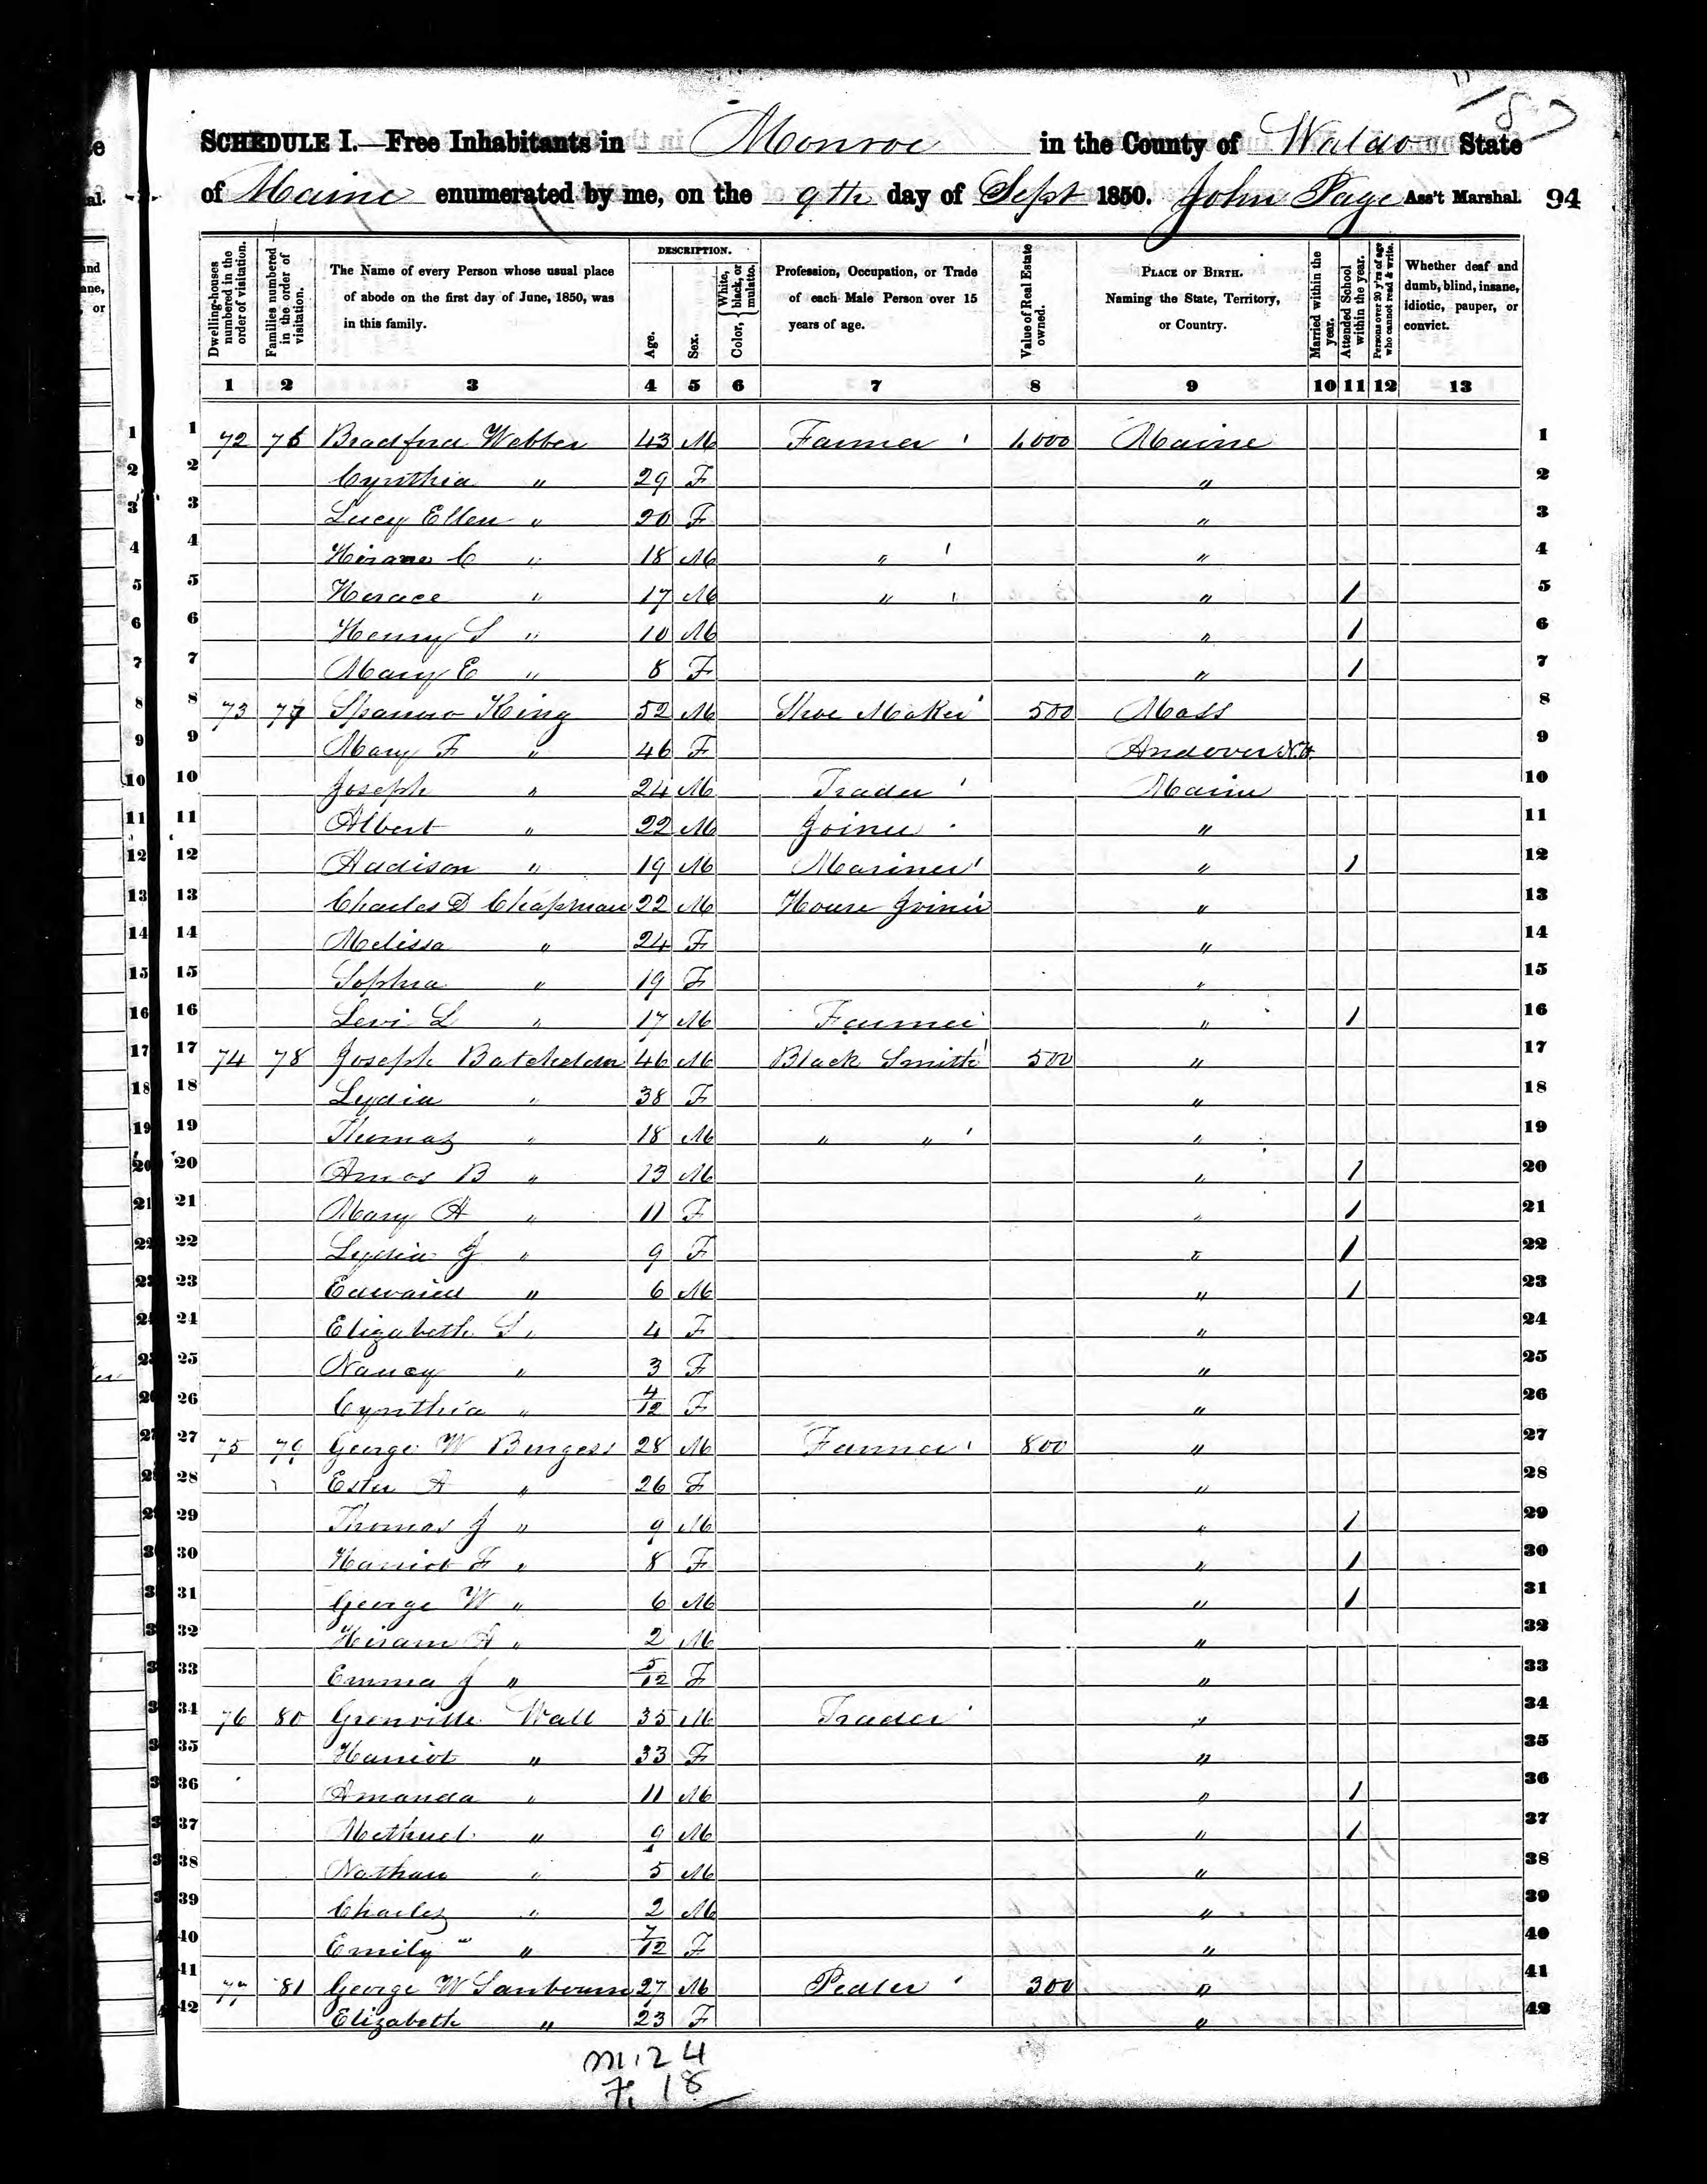 11/87
SCHEDULE I.—Free Inhabitants in Monroe in the County of Waldo State
of Maine enumerated by me, on the 9th day of Sept 1850. John Page Ass't Marshal. 94
Dwelling-houses numbered in the order of visitation.
Families numbered in the order of visitation.
The Name of every Person whose usual place of abode on the first day of June, 1850, was in this family.
DESCRIPTION.
Age.
Sex.
Color, { White, black, or mulatto.
Profession, Occupation, or Trade of each Male Person over 15 years of age.
Value of Real Estate owned.
PLACE OF BIRTH. Naming the State, Territory, or Country.
Married within the year.
Attended School within the year.
Persons over 20 y'rs of age who cannot read & write.
Whether deaf and dumb, blind, insane, idiotic, pauper, or convict.
1 2 3 4 5 6 7 8 9 10 11 12 13
1 72 76 Bradford Webber 43 M Farmer 1,000 Maine 1
2 Cynthia " 29 F " 2
3 Lucy Ellen " 20 F " 3
4 Hiram C " 18 M " " 4
5 Horace " 17 M " " 1 5
6 Henry S " 10 M " 1 6
7 Mary E " 8 F " 1 7
8 73 77 King 52 M Shoe Maker 500 Mass 8
9 Mary F " 46 F Andover N.H. 9
10 Joseph " 24 M Trader Maine 10
11 Albert " 22 M Joiner " 11
12 Addison " 19 M Mariner " 1 12
13 Charles D Chapman 22 M House Joiner " 13
14 Melissa " 24 F " 14
15 Sophia " 19 F " 15
16 Levi L " 17 M Farmer " 1 16
17 74 78 Joseph Batchelder 46 M Black Smith 500 " 17
18 Lydia " 38 F " 18
19 Thomas " 18 M " " " 19
20 Amos B " 13 M " 1 20
21 Mary A " 11 F " 1 21
22 Lydia J " 9 F " 1 22
23 Edward " 6 M " 1 23
24 Elizabeth S " 4 F " 24
25 Nancy " 3 F " 25
26 Cynthia " 4/12 F " 26
27 75 79 George W Burgess 28 M Farmer 800 " 27
28 Ester A " 26 F " 28
29 Thomas J " 9 M " 1 29
30 Harriot F " 8 F " 1 30
31 George W " 6 M " 1 31
32 Hiram A " 2 M " 32
33 Emma J " 5/12 F " 33
34 76 80 Grenville Wall 35 M Trader " 34
35 Harriot " 33 F " 35
36 Amanda " 11 M " 1 36
37 " 9 M " 1 37
38 Nathan " 5 M " 38
39 Charles " 2 M " 39
40 Emily " 7/12 F " 40
41 77 81 George W Sanbourn 27 M Pedler 300 " 41
42 Elizabeth " 23 F " 42
M. 24
F. 18